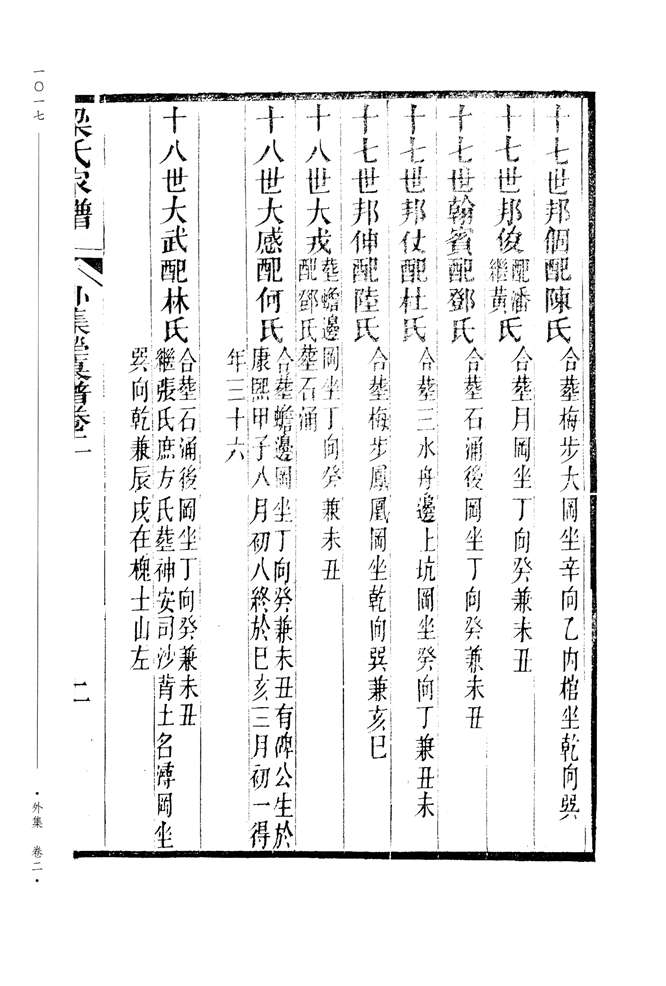 十七世邦個配陳氏 合塟梅步大岡坐辛向乙內棺坐乾向㢲
十七世邦俊配潘繼黃氏 合塟月岡坐丁向癸兼未丑
十七世翰賓配鄧氏 合塟石涌後岡坐丁向癸兼未丑
十七世邦仗配杜氏 合塟三水舟邊上坑岡坐癸向丁兼丑未
十七世邦伸配陸氏 合塟梅步鳳凰岡坐乾向㢲兼亥巳
十八世大戎塟蟾邊岡坐丁向癸兼未丑
配鄧氏塟石涌
十八世大感配何氏 合塟蟾邊岡坐丁向癸兼未丑有碑公生於
康熙甲子八月初八終於巳亥三月初一得
年三十六
十八世大武配林氏 合塟石涌後岡坐丁向癸兼未丑
繼張氏庶方氏塟神安司沙背土名岡坐
㢲向乾兼辰戌在槐士山左
梁氏家譜 外集塋墓譜卷二
二
一〇一七
·外集 卷二·